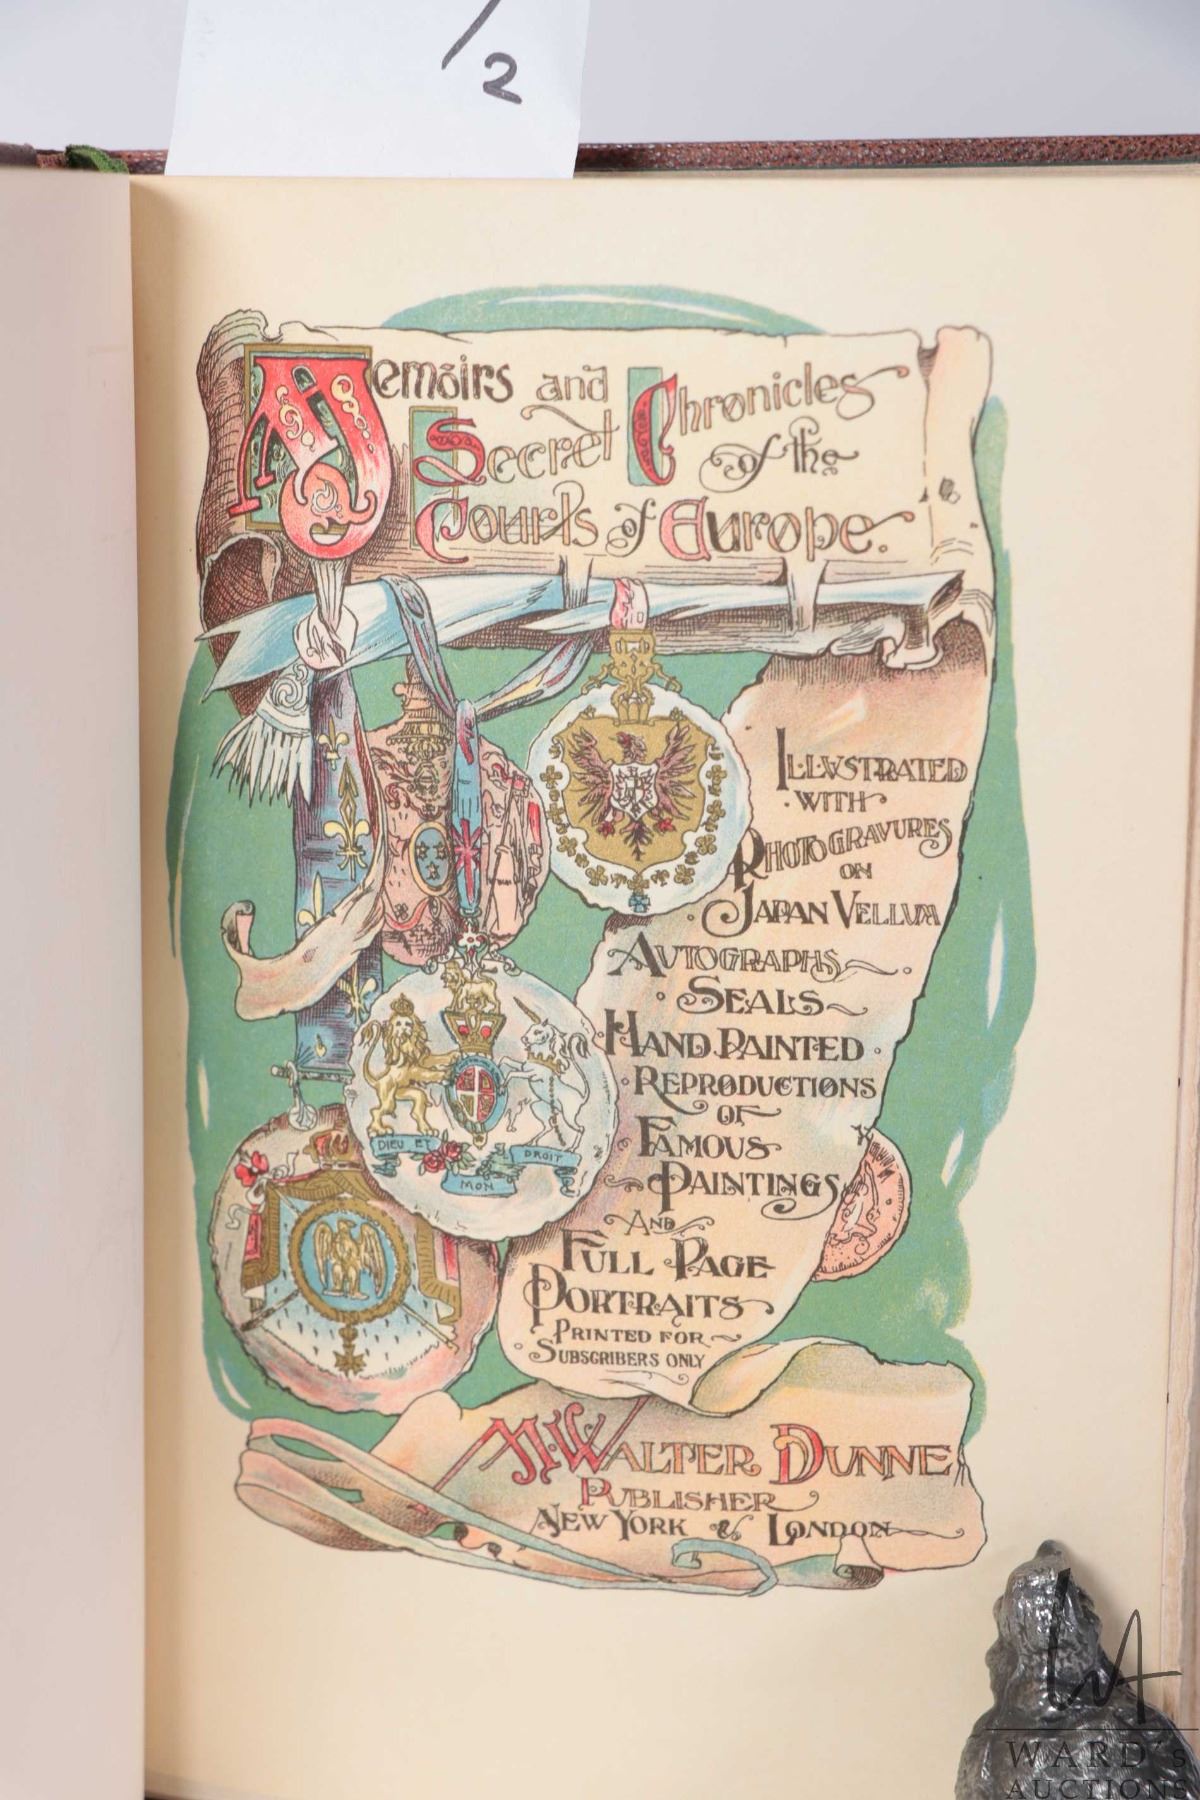 /2
Memoirs and
Secret Chronicles
of the
Courts of Europe.
ILLUSTRATED
WITH
PHOTOGRAVURES
ON
JAPAN VELLUM
AUTOGRAPHS
SEALS
HAND PAINTED
REPRODUCTIONS
OF
FAMOUS
PAINTINGS
AND
FULL PAGE
PORTRAITS
PRINTED FOR
SUBSCRIBERS ONLY
DIEU ET
MON
DROIT
M. WALTER DUNNE
PUBLISHER
NEW YORK & LONDON
WA
WARD's
AUCTIONS